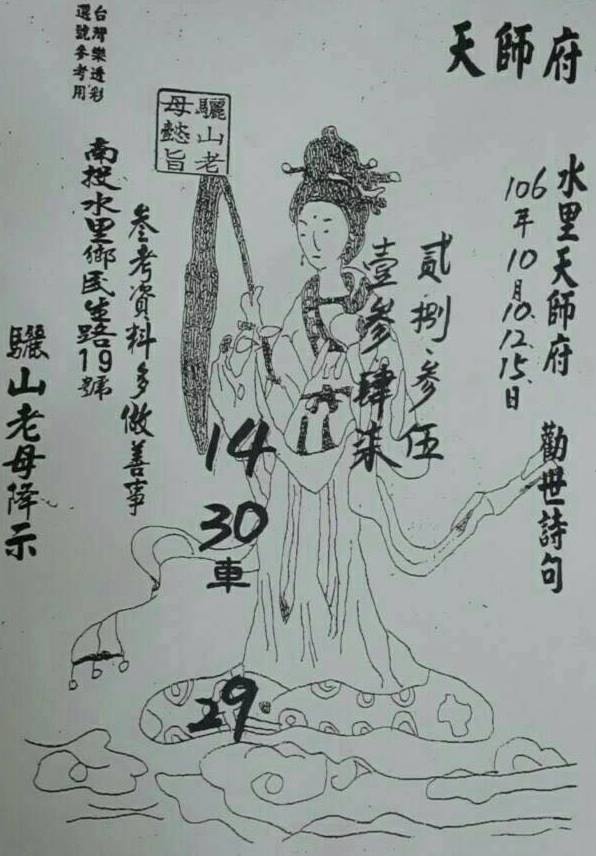 天師府
水里天師府 勸世詩句
106年10月10.12.15.日
貳捌、參伍
壹參肆柒
14
30
車
29
驪山老
母懿旨
參考資料多做善事
南投水里鄉民生路19號
台灣樂透彩
選號參考用
驪山老母降示